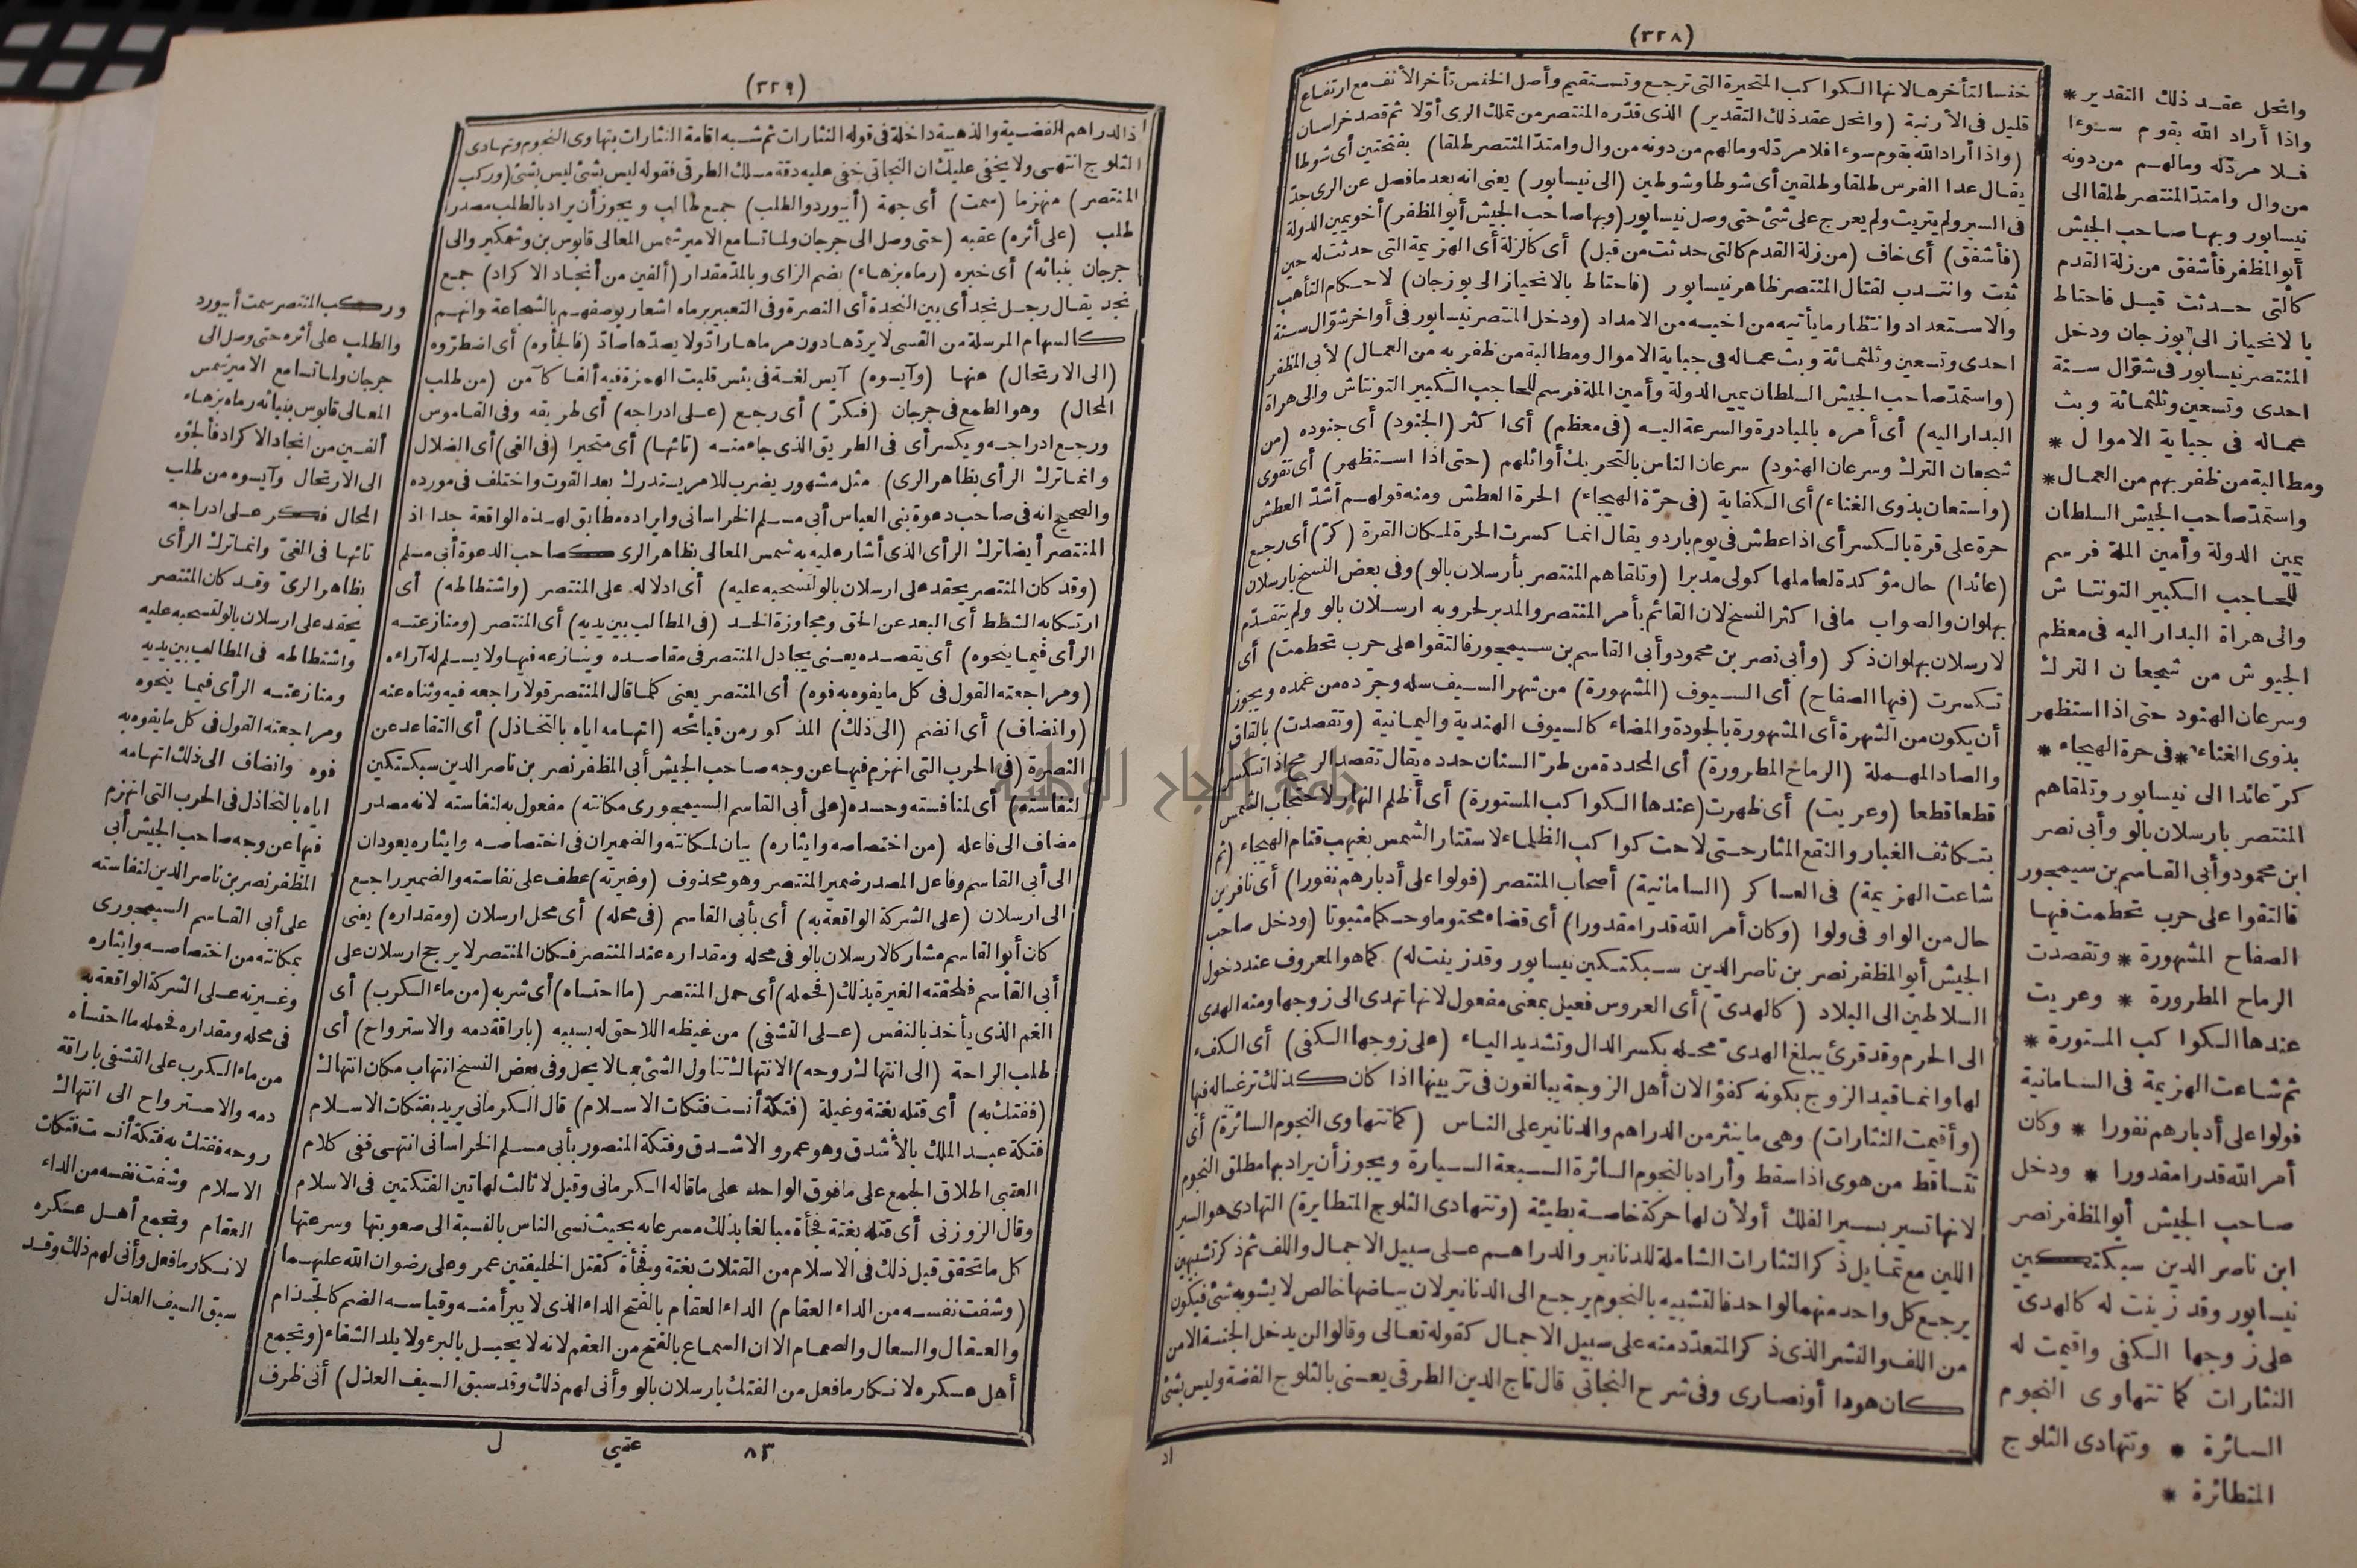 (٣٢٨)
وانحل عقد ذلك التقدير *
واذا أراد الله بقوم سوءا
فلا مردّله ومالهم من دونه
من وال وامتدّ المنتصر طلقا الى
نيسابور وبها صاحب الجيش
أبو المظفر فأشفق من زلة القدم
كالتى حدثت قبل فاحتاط
بالانحياز الى بوزجان ودخل
المنتصر نيسابور فى شوّال سنة
احدى وتسعين وثلثمائة وبث
عماله فى جباية الاموال *
ومطالبة من ظفر بهم من العمال *
واستمدّ صاحب الجيش السلطان
يمين الدولة وأمين الملة فرسم
للحاجب الكبير التونتاش
والى هراة البدار اليه فى معظم
الجيوش من شجعان الترك
وسرعان الهنود حتى اذا استظهر
بذوى الغناء * فى حرة الهيجاء *
كرّ عائدا الى نيسابور وتلقاهم
المنتصر بارسلان بالو وأبى نصر
ابن محمود وأبى القاسم بن سيمجور
فالتقوا على حرب تحطمت فيها
الصفاح المشهورة * وتقصدت
الرماح المطرورة * وعريت
عندها الكواكب المستورة *
ثم شاعت الهزيمة فى السامانية
فولوا على أدبارهم نفورا * وكان
أمر الله قدرا مقدورا * ودخل
صاحب الجيش أبو المظفر نصر
ابن ناصر الدين سبكتكين
نيسابور وقد زينت له كالهدىّ
على زوجها الكفى واقيمت له
النثارات كما تتهاوى النجوم
السائرة * وتتهادى الثلوج
المتطائرة *
خنسا لتأخرها لانها الكواكب المتحيرة التى ترجع وتستقيم وأصل الخنس تأخر الأنف مع ارتفاع
قليل فى الأرنبة (وانحل عقد ذلك التقدير) الذى قدّره المنتصر من تملك الرى أوّلا ثم قصد خراسان
(واذا أراد الله بقوم سوءا فلا مردّله ومالهم من دونه من وال وامتدّ المنتصر طلقا) بفتحتين أى شوطا
يقال عدا الفرس طلقا وطلقين أى شوطا وشوطين (الى نيسابور) يعنى انه بعد ما فصل عن الرى جدّ
فى السير ولم يتريث ولم يعرج على شئ حتى وصل نيسابور (وبها صاحب الجيش أبو المظفر) أخو يمين الدولة
(فأشفق) أى خاف (من زلة القدم كالتى حدثت من قبل) أى كالزلة أى الهزيمة التى حدثت له حين
ثبت وانتدب لقتال المنتصر ظاهر نيسابور (فاحتاط بالانحياز الى بوزجان) لاحكام التأهب
والاستعداد وانتظار ما يأتيه من اخيه من الامداد (ودخل المنتصر نيسابور فى أواخر شوّال سنة
احدى وتسعين وثلثمائة وبث عماله فى جباية الاموال ومطالبة من ظفر به من العمال) لأبى المظفر
(واستمدّ صاحب الجيش السلطان يمين الدولة وأمين الملة فرسم للحاجب الكبير التونتاش والى هراة
البدار اليه) أى أمره بالمبادرة والسرعة اليه (فى معظم) أى اكثر (الجنود) أى جنوده (من
شجعان الترك وسرعان الهنود) سرعان الناس بالتحريك أوائلهم (حتى اذا استظهر) أى تقوى
(واستعان بذوى الغناء) أى الكفاية (فى حرّة الهيجاء) الحرة العطش ومنه قولهم أشدّ العطش
حرة على قرة بالكسر أى اذا عطش فى يوم بارد ويقال انما كسرت الحرة لمكان القرة (كرّ) أى رجع
(عائدا) حال مؤكدة لعاملها كولى مدبرا (وتلقاهم المنتصر بأرسلان بالو) وفى بعض النسخ بارسلان
بهلوان والصواب ما فى اكثر النسخ لان القائم بأمر المنتصر والمدبر لحروبه ارسلان بالو ولم يتقدّم
لارسلان بهلوان ذكر (وأبى نصر بن محمود وأبى القاسم بن سيمجور فالتقوا على حرب تحطمت) أى
تكسرت (فيها الصفاح) أى السيوف (المشهورة) من شهر السيف سله وجرّده من غمده ويجوز
أن يكون من الشهرة أى المشهورة بالجودة والمضاء كالسيوف الهندية واليمانية (وتقصدت) بالقاف
والصاد المهملة (الرماح المطرورة) أى المحددة من طرّ السنان حدده يقال تقصد الرمح اذا تكسر
قطعا قطعا (وعريت) أى ظهرت (عندها الكواكب المستورة) أى أظلم النهار لاحتجاب الشمس
بتكاثف الغبار والنقع المثار حتى لاحت كواكب الظلماء لاستتار الشمس بغيهب قتام الهيجاء (ثم
شاعت الهزيمة) فى العساكر (السامانية) أصحاب المنتصر (فولوا على أدبارهم نفورا) أى نافرين
حال من الواو فى ولوا (وكان أمر الله قدرا مقدورا) أى قضاء محتوما وحكما مثبوتا (ودخل صاحب
الجيش أبو المظفر نصر بن ناصر الدين سبكتكين نيسابور وقد زينت له) كما هو المعروف عند دخول
السلاطين الى البلاد (كالهدىّ) أى العروس فعيل بمعنى مفعول لانها تهدى الى زوجها ومنه الهدى
الى الحرم وقد قرئ يبلغ الهدىّ محله بكسر الدال وتشديد الياء (على زوجها الكفى) أى الكفء
لها وانما قيد الزوج بكونه كفؤا لان أهل الزوجة يبالغون فى تزيينها اذا كان كذلك ترغيبا له فيها
(وأقيمت النثارات) وهى ما ينثر من الدراهم والدنانير على الناس (كما تتهاوى النجوم السائرة) أى
تتساقط من هوى اذا سقط وأراد بالنجوم السائرة السبعة السيارة ويجوز أن يراد بها مطلق النجوم
لانها تسير بسير الفلك أو لأن لها حركة خاصة بطيئة (وتتهادى الثلوج المتطايرة) التهادى هو السير
اللين مع تمايل ذكر النثارات الشاملة للدنانير والدراهم على سبيل الاجمال واللف ثم ذكر تشبيهين
يرجع كل واحد منهما لواحد فالتشبيه بالنجوم يرجع الى الدنانير لان بياضها خالص لا يشوبه شئ فيكون
من اللف والنشر الذى ذكر المتعدّد منه على سبيل الاجمال كقوله تعالى وقالوا لن يدخل الجنة الا من
كان هودا أو نصارى وفى شرح النجاتى قال تاج الدين الطرقى يعنى بالثلوج الفضة وليس بشئ
اد
(٣٢٩)
اذ الدراهم الفضية والذهبية داخلة فى قوله النثارات ثم شبه اقامة النثارات بتهاوى النجوم وتهادى
الثلوج انتهى ولا يخفى عليك ان النجاتى خفى عليه دقة مسلك الطرقى فقوله ليس بشئ ليس بشئ (وركب
المنتصر) منهزما (سمت) أى جهة (أبيورد والطلب) جمع طالب ويجوز أن يراد بالطلب مصدر
طلب (على أثره) عقبه (حتى وصل الى جرجان ولما تسامع الامير شمس المعالى قابوس بن وشمكير والى
جرجان بنبائه) أى خبره (رماه بزهاء) بضم الزاى وبالمدّ مقدار (ألفين من أنجاد الاكراد) جمع
نجد يقال رجل نجد أى بين النجدة أى النصرة وفى التعبير برماه اشعار بوصفهم بالشجاعة وانهم
كالسهام المرسلة من القسى لا يردّها دون مرماها رادّ ولا يصدّها صادّ (فالجأوه) أى اضطرّوه
(الى الارتحال) عنها (وآيسوه) آيس لغة فى يئس قلبت الهمزة فيه ألفا كآمن (من طلب
المحال) وهو الطمع فى جرجان (فكرّ) أى رجع (على ادراجه) أى طريقه وفى القاموس
ورجع ادراجه ويكسر أى فى الطريق الذى جاء منه (تائها) أى متحيرا (فى الغى) أى الضلال
(وانما ترك الرأى بظاهر الرى) مثل مشهور يضرب للامر يستدرك بعد الفوت واختلف فى مورده
والصحيح انه فى صاحب دعوة بنى العباس أبى مسلم الخراسانى وايراده مطابق لهذه الواقعة جدا اذ
المنتصر أيضا ترك الرأى الذى أشار عليه به شمس المعالى بظاهر الرى كصاحب الدعوة أبى مسلم
(وقد كان المنتصر يحقد على ارسلان بالو لتسحبه عليه) أى ادلاله على المنتصر (واشتطاطه) أى
ارتكابه الشطط أى البعد عن الحق ومجاوزة الحد (فى المطالب بين يديه) أى المنتصر (ومنازعته
الرأى فيما ينحوه) أى يقصده يعنى يجادل المنتصر فى مقاصده وينازعه فيها ولا يسلم له آراءه
(ومراجعته القول فى كل ما يفوه به فوه) أى المنتصر يعنى كلما قال المنتصر قولا راجعه فيه وثناه عنه
(وانضاف) أى انضم (الى ذلك) المذكور من قبائحه (اتهامه اياه بالتخاذل) أى التقاعد عن
النصرة (فى الحرب التى انهزم فيها عن وجه صاحب الجيش أبى المظفر نصر بن ناصر الدين سبكتكين
لنفاسته) أى لمنافسته وحسده (على أبى القاسم السيمجورى مكانته) مفعول به لنفاسته لانه مصدر
مضاف الى فاعله (من اختصاصه وايثاره) بيان لمكانته والضميران فى اختصاصه وايثاره يعودان
الى أبى القاسم وفاعل المصدر ضمير المنتصر وهو محذوف (وغيرته) عطف على نفاسته والضمير راجع
الى ارسلان (على الشركة الواقعة به) أى بأبى القاسم (فى محله) أى محل ارسلان (ومقداره) يعنى
كان أبو القاسم مشاركا لارسلان بالو فى محله ومقداره عند المنتصر فكان المنتصر لا يرجح ارسلان على
أبى القاسم فلحقته الغيرة بذلك (فحمله) أى حمل المنتصر (ما احتساه) أى شربه (من ماء الكرب) أى
الغم الذى يأخذ بالنفس (على التشفى) من غيظه اللاحق له بسببه (باراقة دمه والاسترواح) أى
طلب الراحة (الى انتهاك روحه) الانتهاك تناول الشئ بما لا يحل وفى بعض النسخ انتهاب مكان انتهاك
(ففتك به) أى قتله بغتة وغيلة (فتكة أنست فتكات الاسلام) قال الكرمانى يريد بفتكات الاسلام
فتكة عبد الملك بالأشدق وهو عمرو الاشدق وفتكة المنصور بأبى مسلم الخراسانى انتهى ففى كلام
العتبى اطلاق الجمع على ما فوق الواحد على ما قاله الكرمانى وقيل لا ثالث لهاتين الفتكتين فى الاسلام
وقال الزوزنى أى قتله بغتة فجأة مبالغا بذلك مسرعا به بحيث نسى الناس بالنسبة الى صعوبتها وسرعتها
كل ما تحقق قبل ذلك فى الاسلام من القتلات بغتة وفجأة كقتل الخليفتين عمر وعلى رضوان الله عليهما
(وشفت نفسه من الداء العقام) الداء العقام بالفتح الداء الذى لا يبرأ منه وقياسه الضم كالجذام
والعقال والسعال والصمام الا ان السماع بالفتح من العقم لانه لا يحبل بالبرء ولا يلد الشفاء (وتجمع
أهل عسكره لانكار ما فعل من الفتك بارسلان بالو وأنى لهم ذلك وقد سبق السيف العذل) أنى ظرف
وركب المنتصر سمت أبيورد
والطلب على أثره حتى وصل الى
جرجان ولما تسامع الامير شمس
المعالى قابوس بنبائه رماه بزهاء
ألفين من انجاد الاكراد فألجؤه
الى الارتحال وآيسوه من طلب
المحال فكر على ادراجه
تائها فى الغىّ وانما ترك الرأى
بظاهر الرىّ وقد كان المنتصر
يحقد على ارسلان بالو لتسحبه عليه
واشتطاطه فى المطالب بين يديه
ومنازعته الرأى فيما ينحوه
ومراجعته القول فى كل ما يفوه به
فوه وانضاف الى ذلك اتهامه
اياه بالتخاذل فى الحرب التى انهزم
فيها عن وجه صاحب الجيش أبى
المظفر نصر بن ناصر الدين لنفاسته
على أبى القاسم السيمجورى
بمكانته من اختصاصه وايثاره
وغيرته على الشركة الواقعة به
فى محله ومقداره فحمله ما احتساه
من ماء الكرب على التشفى باراقة
دمه والاسترواح الى انتهاك
روحه ففتك به فتكة أنست فتكات
الاسلام وشفت نفسه من الداء
العقام وتجمع أهل عسكره
لانكار ما فعل وأنى لهم ذلك وقد
سبق السيف العذل
٨٣ عتبي ل
جامعة النجاح الوطنية